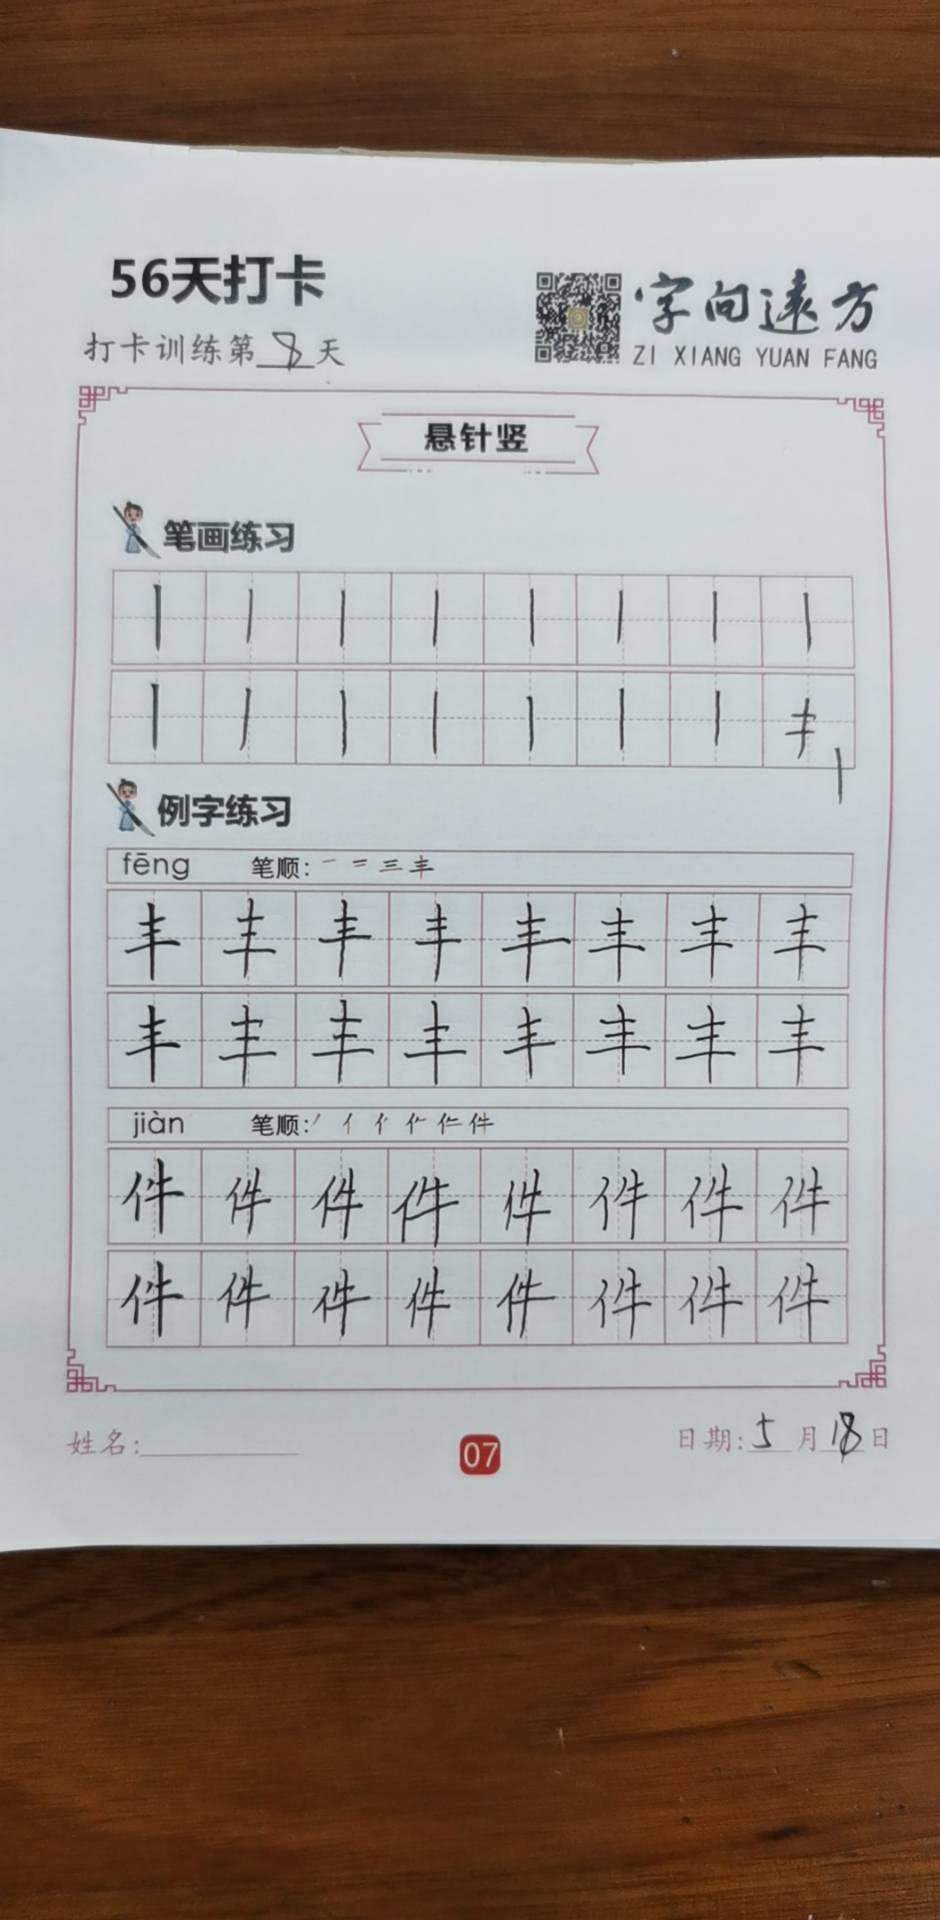 56天打卡
打卡训练第8天
字向远方
ZI XIANG YUAN FANG
悬针竖
笔画练习
丨 丨 丨 丨 丨 丨 丨 丨
丨 丨 丨 丨 丨 丨 丨 丰
丨
例字练习
fēng 笔顺: 一 二 三 丰
丰 丰 丰 丰 丰 丰 丰 丰
丰 丰 丰 丰 丰 丰 丰 丰
jiàn 笔顺: 丿 亻 件
件 件 件 件 件 件 件 件
件 件 件 件 件 件 件 件
姓名:
07
日期: 5 月 18 日